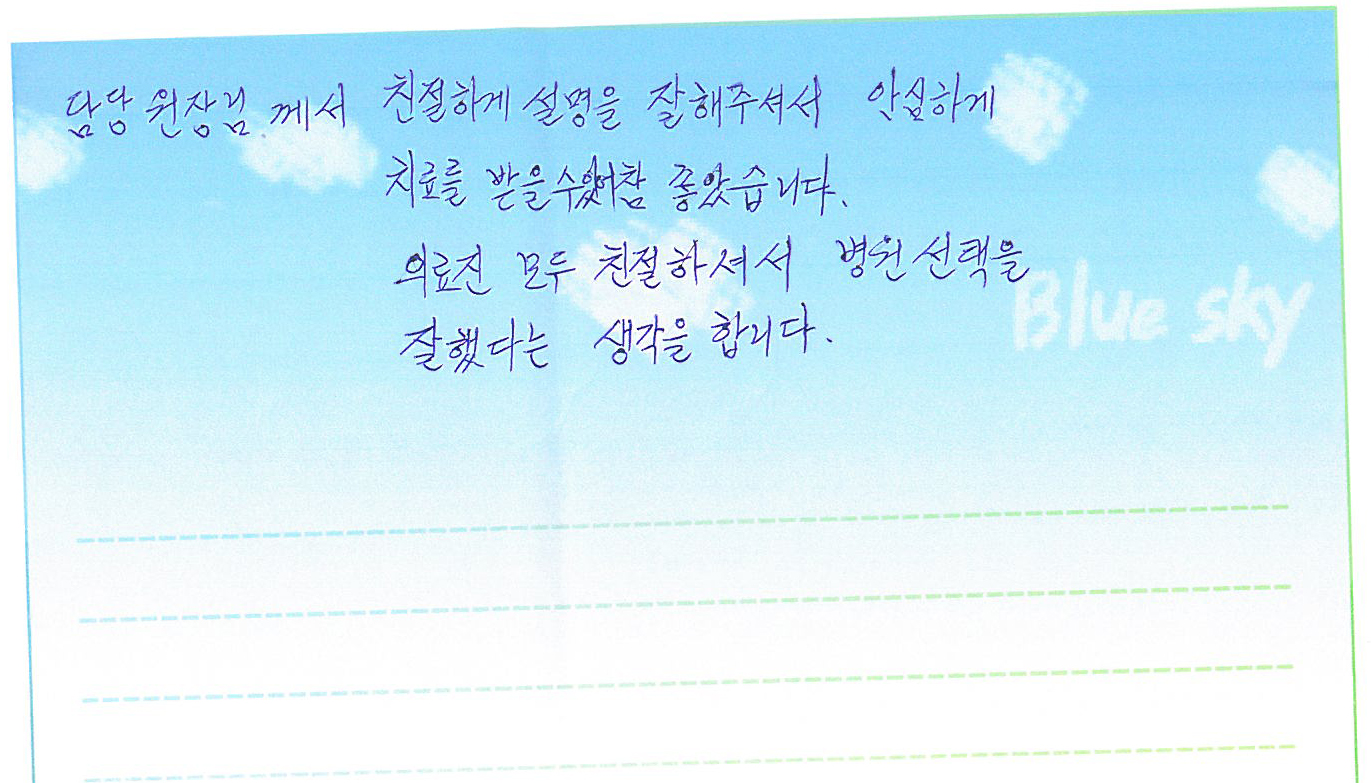 담당 원장님 께서 친절하게 설명을 잘해주셔서 안심하게
치료를 받을수있어참 좋았습니다.
의료진 모두 친절하셔서 병원선택을
잘했다는 생각을 합니다.
Blue sky